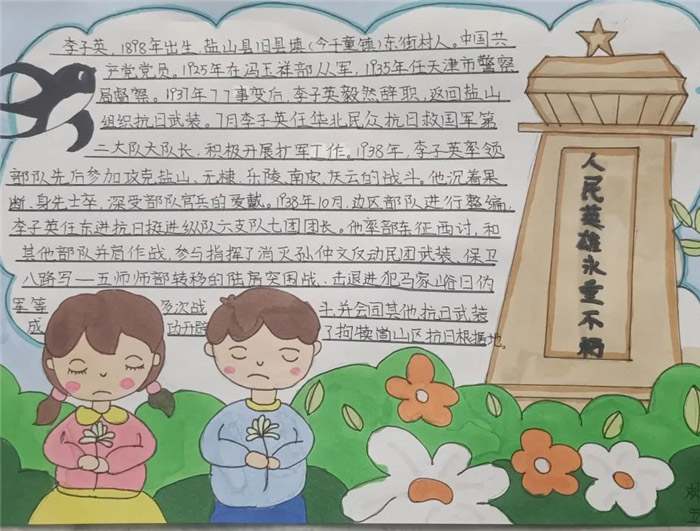 李子英，1898年出生，盐山县旧县镇（今千童镇）东街村人。中国共
产党党员。1925年在冯玉祥部从军，1935年任天津市警察
局督察。1937年77事变后，李子英毅然辞职，返回盐山
组织抗日武装。7月李子英任华北民众抗日救国军第
二大队大队长，积极开展扩军工作。1938年，李子英率领
部队先后参加攻克盐山、无棣、乐陵、南皮、庆云的战斗。他沉着果
断，身先士卒，深受部队官兵的爱戴。1938年10月，边区部队进行整编，
李子英任东进抗日挺进纵队六支队七团团长。他率部东征西讨，和
其他部队并肩作战，参与指挥了消灭孙仲文反动民团武装、保卫
八路军一一五师师部转移的陆房突围战、击退进犯马家峪日伪
军等 多次战 斗，并会同其他抗日武装
成 功开辟 了抱犊崮山区抗日根据地。
人民英雄永垂不朽